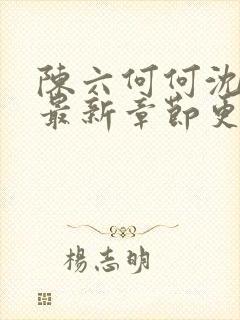 陳六何何沈
最新章節更
楊志明